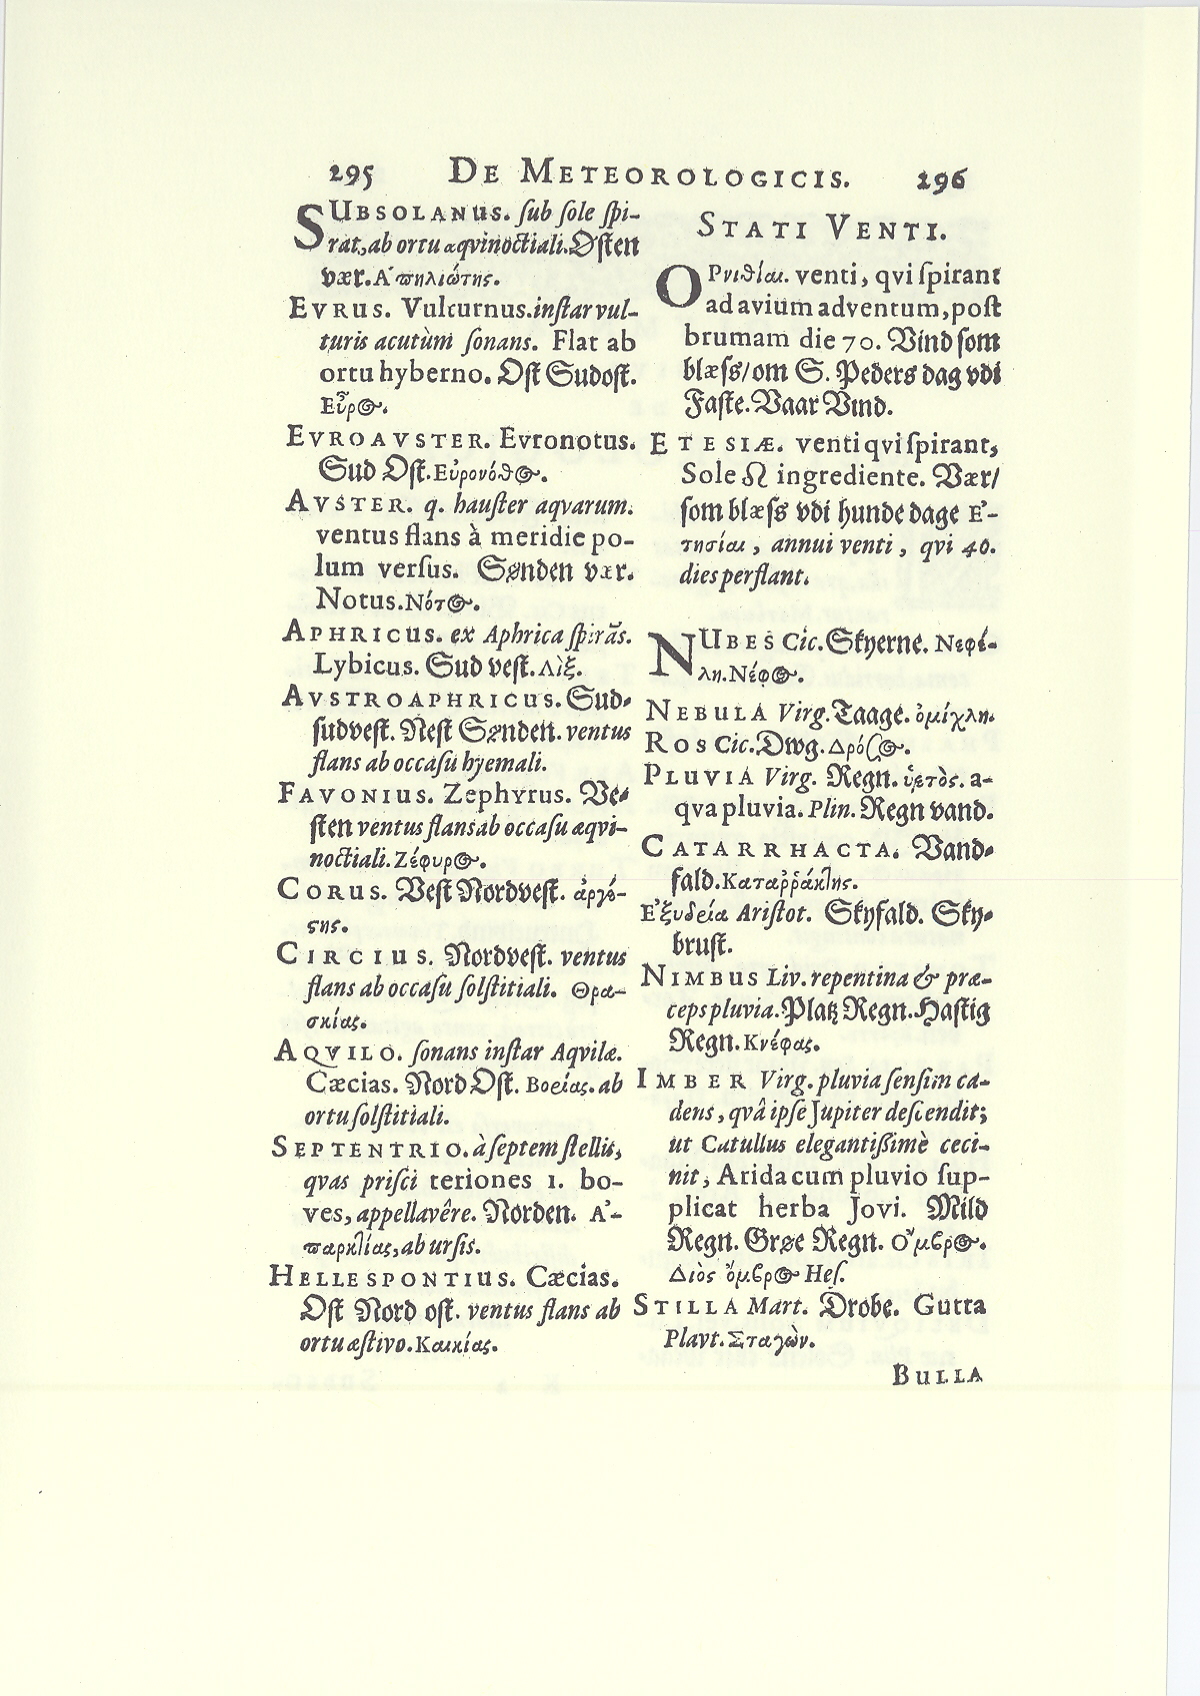 295 DE METEOROLOGICIS. 296
SUBSOLANUS. sub sole spi-
rat, ab ortu æqvinoctiali. Østen
vær. Α᾿πηλιώτης.
EVRUS. Vulturnus. instar vul-
turis acutùm sonans. Flat ab
ortu hyberno. Ost Sudost.
Εὖρος.
EVROAVSTER. Evronotus.
Sud Ost. Εὐρονόθος.
AVSTER. q. hauster aqvarum.
ventus flans à meridie po-
lum versus. Sønden vær.
Notus. Νότος.
APHRICUS. ex Aphrica spirãs.
Lybicus. Sud vest. Λὶξ.
AVSTROAPHRICUS. Sud-
sudvest. Nest Sønden. ventus
flans ab occasu hyemali.
FAVONIUS. Zephyrus. Ve-
sten ventus flans ab occasu æqvi-
noctiali. Ζέφυρος.
CORUS. Vest Nordvest. ἀργέ-
στης.
CIRCIUS. Nordvest. ventus
flans ab occasu solstitiali. Θρα-
σκίας.
AQVILO. sonans instar Aqvilæ.
Cæcias. Nord Ost. Βορείας. ab
ortu solstitiali.
SEPTENTRIO. à septem stellis,
qvas prisci teriones 1. bo-
ves, appellavêre. Norden. Α᾿-
παρκτίας, ab ursis.
HELLESPONTIUS. Cæcias.
Ost Nord ost. ventus flans ab
ortu æstivo. Καικίας.
STATI VENTI.
ΟΡνιθίαι. venti, qvi spirant
ad avium adventum, post
brumam die 70. Vind som
blæss/ om S. Peders dag vdi
Faste. Vaar Vind.
ETESIÆ. venti qvi spirant,
Sole ♌ ingrediente. Vær/
som blæss vdi hunde dage Ε᾿-
τησίαι, annui venti, qvi 40.
dies perflant.
NUBES Cic. Skyerne. Νεφέ-
λη. Νέφος.
NEBULA Virg. Taage. ὀμίχλη.
ROS Cic. Dwg. Δρόσος.
PLUVIA Virg. Regn. ὑετὸς. a-
qva pluvia. Plin. Regn vand.
CATARRHACTA. Vand-
fald. Καταῤῥάκτης.
Ε᾿ξυδρία Aristot. Skyfald. Sky-
brust.
NIMBUS Liv. repentina & præ-
ceps pluvia. Platz Regn. Hastig
Regn. Κνέφας.
IMBER Virg. pluvia sensim ca-
dens, qvâ ipse Jupiter descendit;
ut Catullus elegantissimè ceci-
nit, Arida cum pluvio sup-
plicat herba Jovi. Mild
Regn. Grøe Regn. Ο῎μβρος.
Διὸς ὄμβρος Hes.
STILLA Mart. Drobe. Gutta
Plavt. Σταγὼν.
BULLA